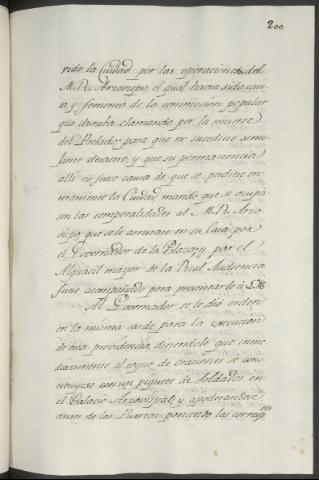 200
rido la Ciudad por las operaciones del
M. R. Arzobispo, el qual havia sido cau-
sa, y fomento de la conmocion popular
que duraba, clamando por la muerte
del Prelado; para que no sucediese seme-
jante desacato, y que su permanencia
alli no fuese causa de que se perdiese en-
teramente la Ciudad mandó que se ocupa-
sen las temporalidades al M. R. Arzo-
vispo, que se le arrestase en su Casa por
el Governador de la Plaza, y por el
Alguacil mayor de la Real Audiencia
fuese acompañado para presentarse à S.M.
Al Governador se le dió orden
en la misma tarde para la execucion
de esta providencia, diciendole que inme-
diatamente al toque de oraciones se cons-
tituyese con un piquete de Soldados en
el Palacio Arzovispal, y apoderandose
antes de las Puertas poniendo las corresp.tes